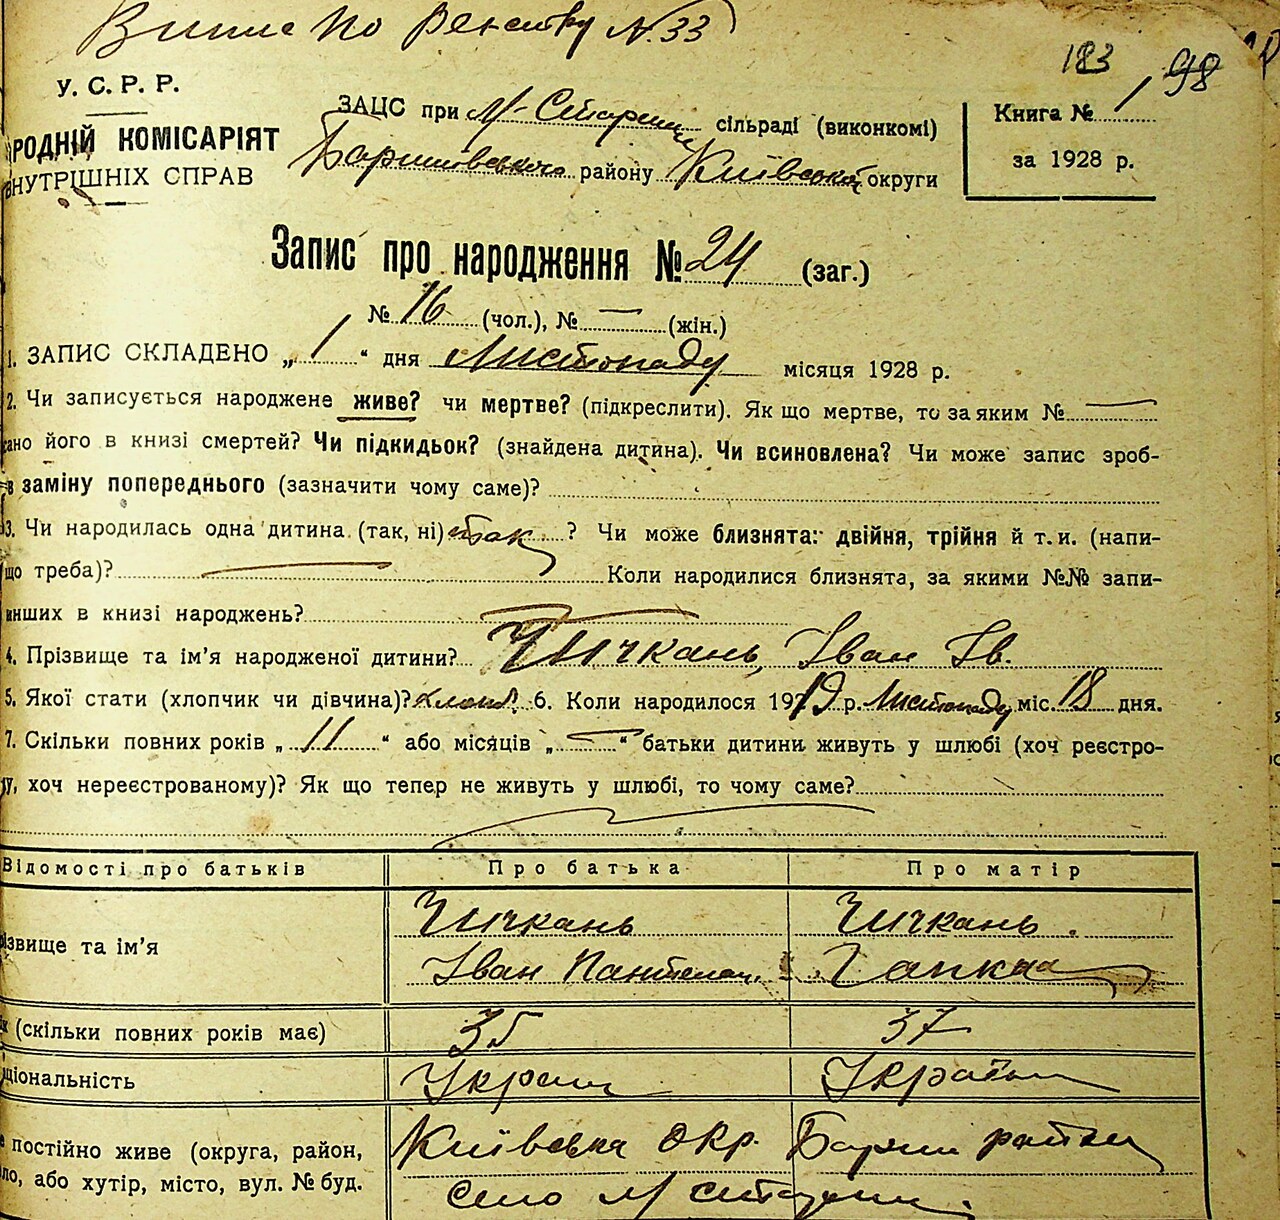 по № 33
183 98
У. С. Р. Р.
РОДНІЙ КОМІСАРІЯТ
ВНУТРІШНІХ СПРАВ
ЗАЦС при сільраді (виконкомі)
району Київської округи
Книга № 1
за 1928 р.
Запис про народження № 24 (заг.)
№ 16 (чол.), № — (жін.)
1. ЗАПИС СКЛАДЕНО „ 1 “ дня Листопаду місяця 1928 р.
2. Чи записується народжене живе? чи мертве? (підкреслити). Як що мертве, то за яким № —
сано його в книзі смертей? Чи підкидьок? (знайдена дитина). Чи всиновлена? Чи може запис зроб-
в заміну попереднього (зазначити чому саме)?
3. Чи народилась одна дитина (так, ні) так ? Чи може близнята: двійня, трійня й т. и. (напи-
що треба)? — Коли народилися близнята, за якими №№ запи-
инших в книзі народжень? —
4. Прізвище та ім’я народженої дитини? Чичкань, Іван Ів.
5. Якої стати (хлопчик чи дівчина)? хлопч. 6. Коли народилося 1919 р. Листопаду міс. 18 дня.
7. Скільки повних років „ 11 “ або місяців „ — “ батьки дитини живуть у шлюбі (хоч реєстро-
у, хоч нереєстрованому)? Як що тепер не живуть у шлюбі, то чому саме?
Відомості про батьків Про батька Про матір
різвище та ім’я Чичкань Чичкань.
Іван Пантелем. Гапка
к (скільки повних років має) 35 37
ціональність Україн Українк
е постійно живе (округа, район, Київська окр. Бориш район
ло, або хутір, місто, вул. № буд. село М